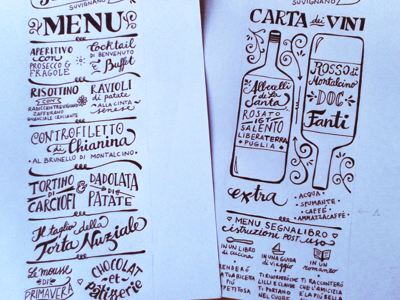 SUVIGNANO
MENU
APERITIVO
con
PROSECCO &
FRAGOLE
Cocktail
DI BENVENUTO
Buffet
RISOTTINO
CON
RADICCHIO TREVIGIANO
ZAFFERANO
RAVIOLI
di patate
ALLA CINTA
senese
CONTROFILETTO
di Chianina
AL BRUNELLO DI MONTALCINO
TORTINO
di
CARCIOFI
&
DADOLATA
di
PATATE
Il taglio della
Torta Nuziale
Le mousse
di
PRIMAVERA
CHOCOLAT
et
Pâtisserie
SUVIGNANO
CARTA dei VINI
Alberelli
di la
Santa
ROSATO
IGT
SALENTO
LIBERA TERRA
PUGLIA
ROSSO di
Montalcino
DOC
Fanti
extra
ACQUA
SPUMANTE
CAFFÈ
AMMAZZACAFFÈ
MENU SEGNALIBRO
istruzioni POST uso
IN UN LIBRO
di cucina
IN UNA GUIDA
di viaggio
IN UN
romanzo